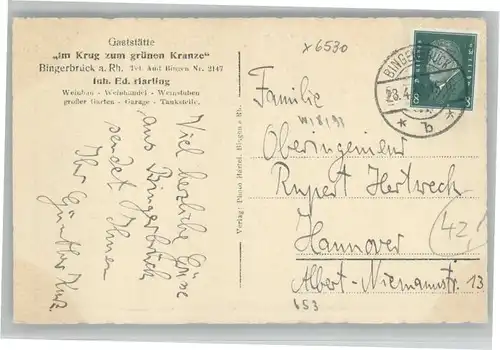 Gaststätte
„Im Krug zum grünen Kranze"
Bingerbrück a. Rh. Tel. Amt Bingen Nr. 2147
Inh. Ed. Harling
Weinbau - Weinhandel - Weinstuben
großer Garten - Garage - Tankstelle.
Viel herzliche Grüße
aus Bingerbrück
sendet Ihnen
Ihr Günther
Verlag: Bingen a. Rh.
x6530
BINGERBRÜCK
23.4.
* a *
8 8
Familie
Oberingenieur
Rupert Hertweck
Hannover
Albert-Niemannstr 13
42,